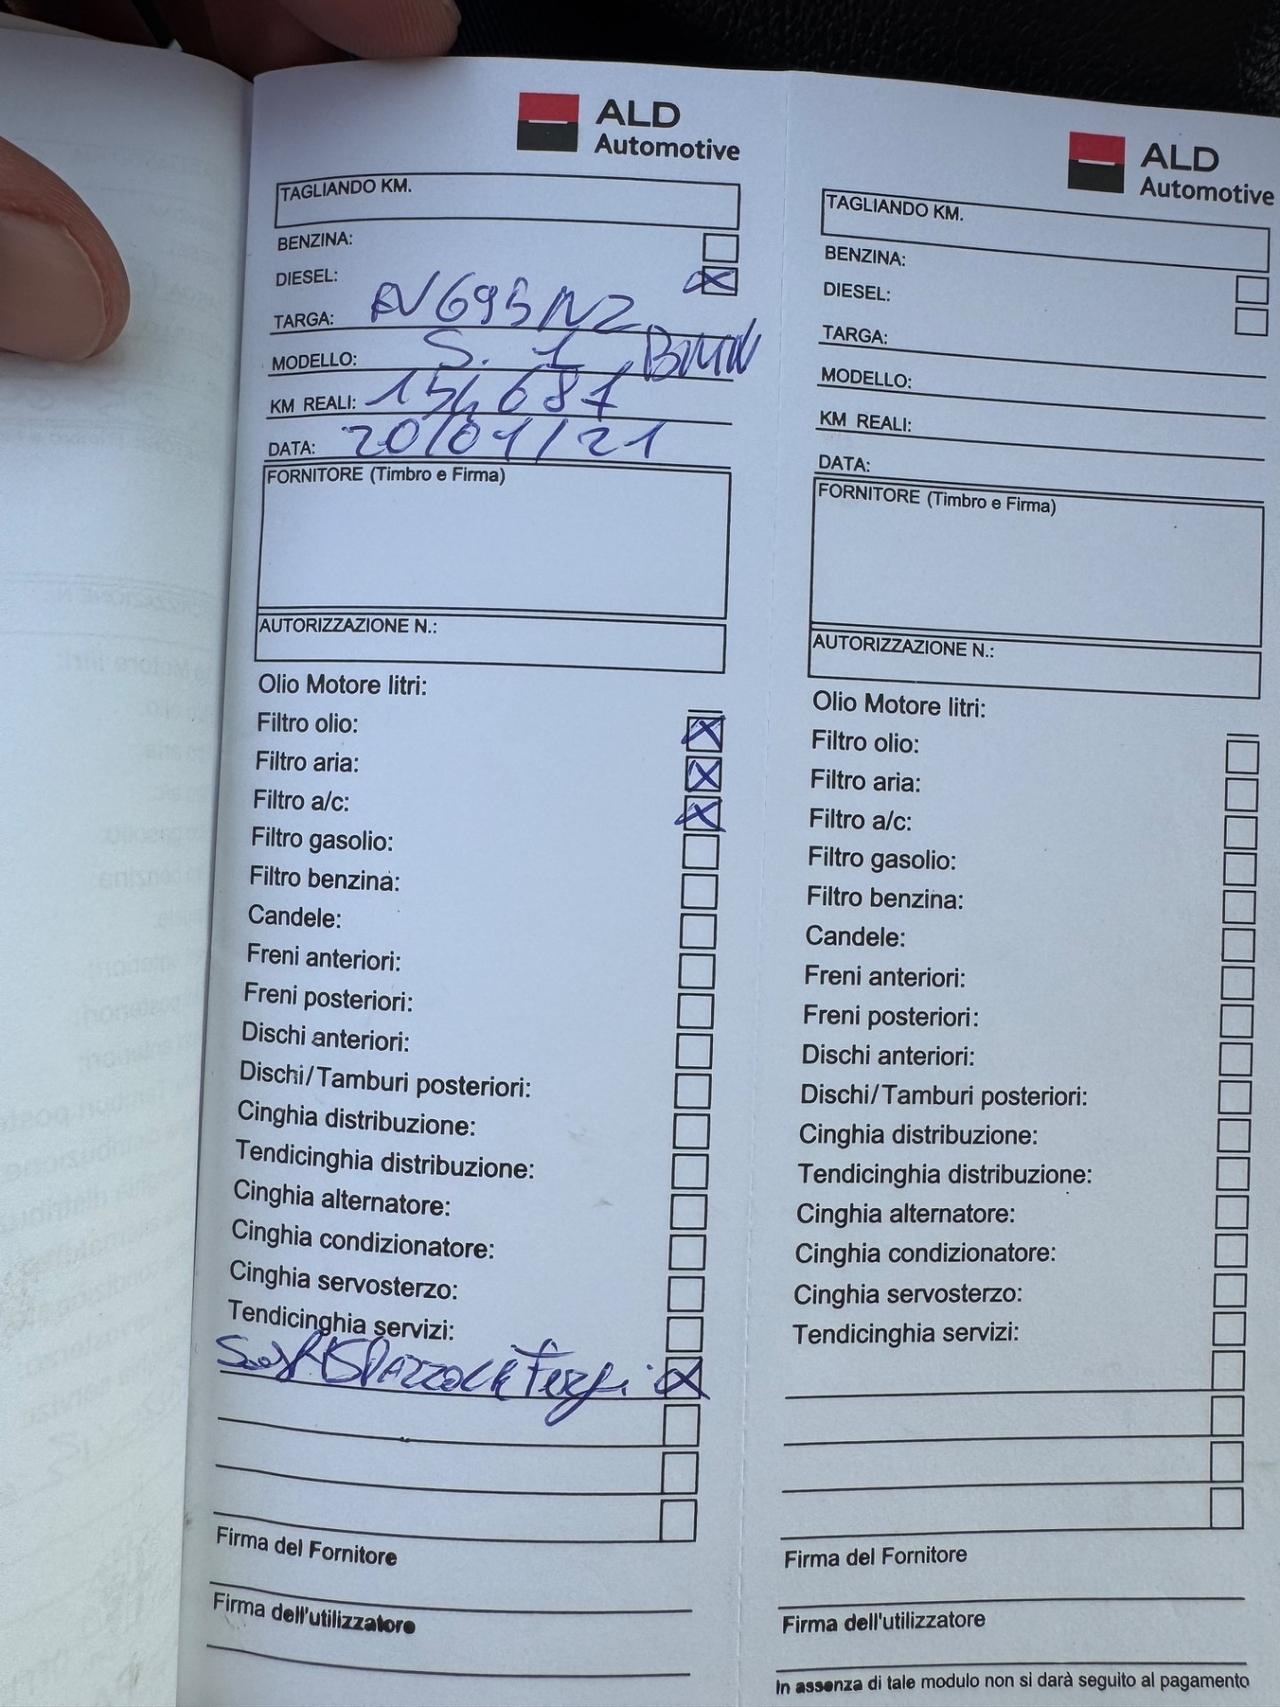 ALD
Automotive
TAGLIANDO KM.
BENZINA:
DIESEL:
TARGA: 695NZ
MODELLO: S. 1 BMW
KM REALI: 154687
DATA: 20/01/21
FORNITORE (Timbro e Firma)
AUTORIZZAZIONE N.:
Olio Motore litri:
Filtro olio:
Filtro aria:
Filtro a/c:
Filtro gasolio:
Filtro benzina:
Candele:
Freni anteriori:
Freni posteriori:
Dischi anteriori:
Dischi/Tamburi posteriori:
Cinghia distribuzione:
Tendicinghia distribuzione:
Cinghia alternatore:
Cinghia condizionatore:
Cinghia servosterzo:
Tendicinghia servizi:
Sost SPAZZOLE Tergi
Firma del Fornitore
Firma dell'utilizzatore
ALD
Automotive
TAGLIANDO KM.
BENZINA:
DIESEL:
TARGA:
MODELLO:
KM REALI:
DATA:
FORNITORE (Timbro e Firma)
AUTORIZZAZIONE N.:
Olio Motore litri:
Filtro olio:
Filtro aria:
Filtro a/c:
Filtro gasolio:
Filtro benzina:
Candele:
Freni anteriori:
Freni posteriori:
Dischi anteriori:
Dischi/Tamburi posteriori:
Cinghia distribuzione:
Tendicinghia distribuzione:
Cinghia alternatore:
Cinghia condizionatore:
Cinghia servosterzo:
Tendicinghia servizi:
Firma del Fornitore
Firma dell'utilizzatore
In assenza di tale modulo non si darà seguito al pagamento